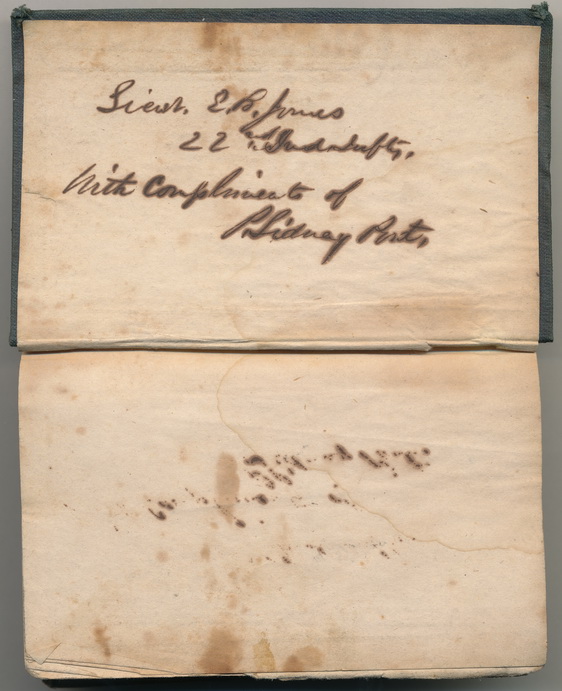 Lieut. E. B. Jones
22nd Ind. Infty,
With Compliments of
P Sidney Post,